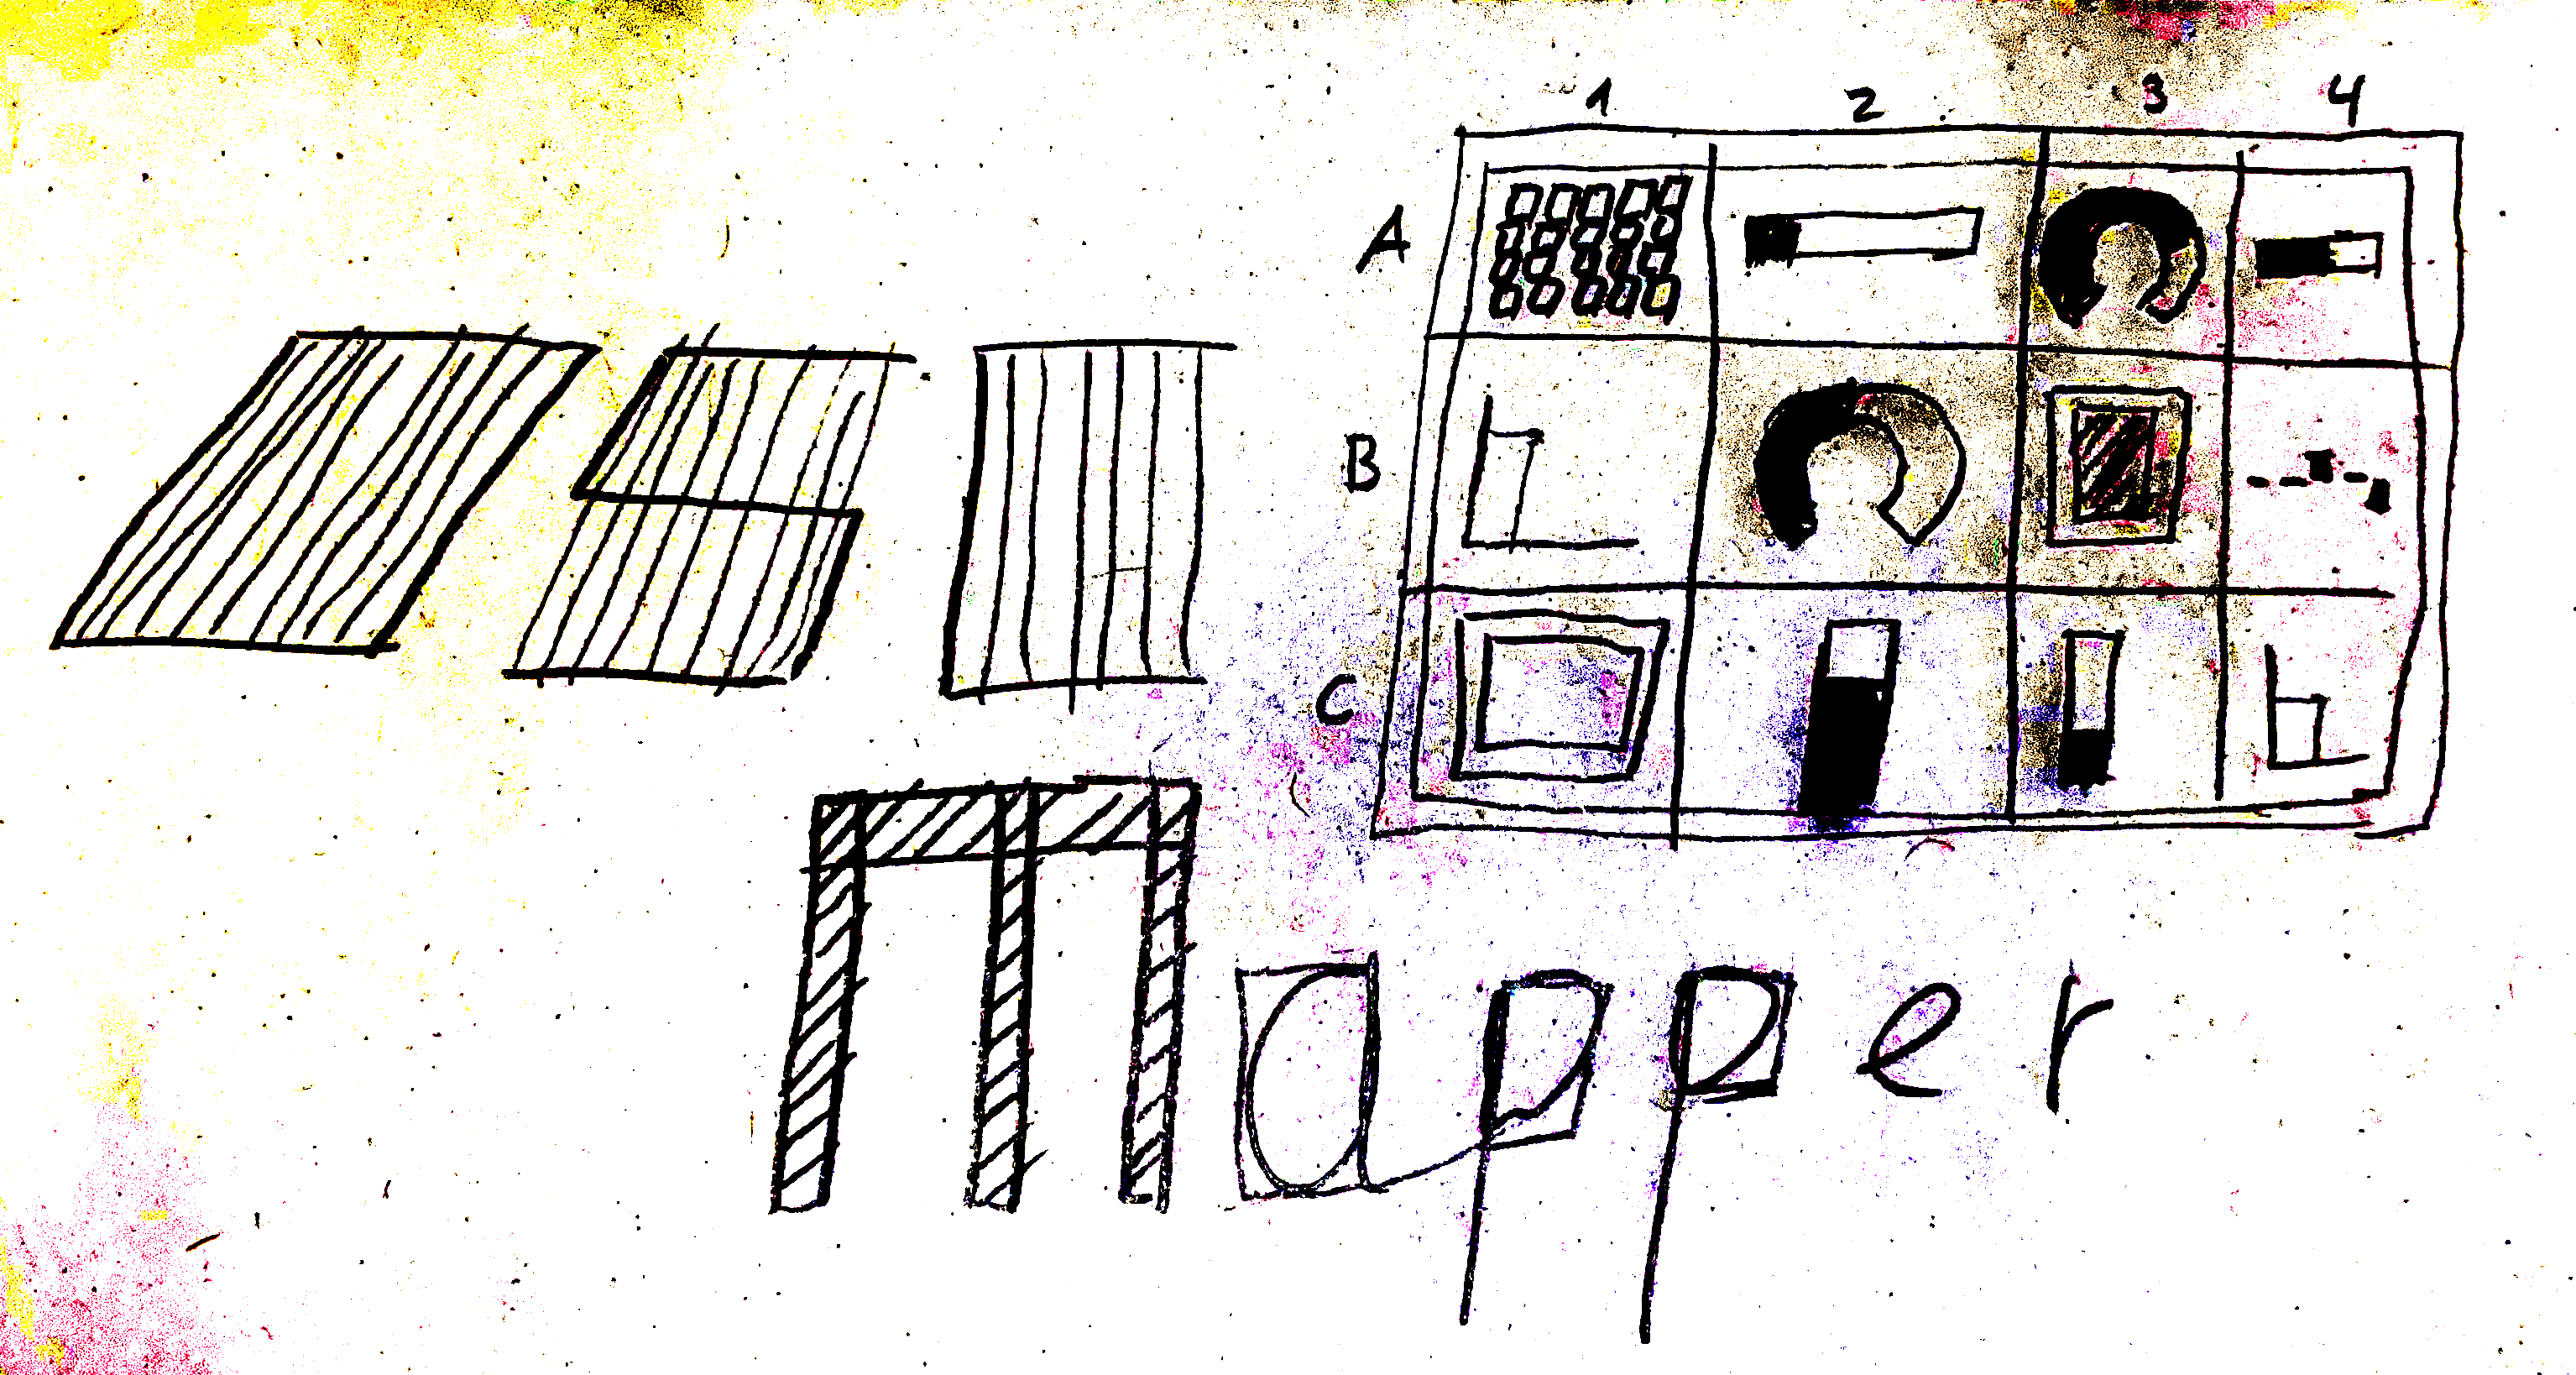 1 2 3 4
A
B
C
mapper